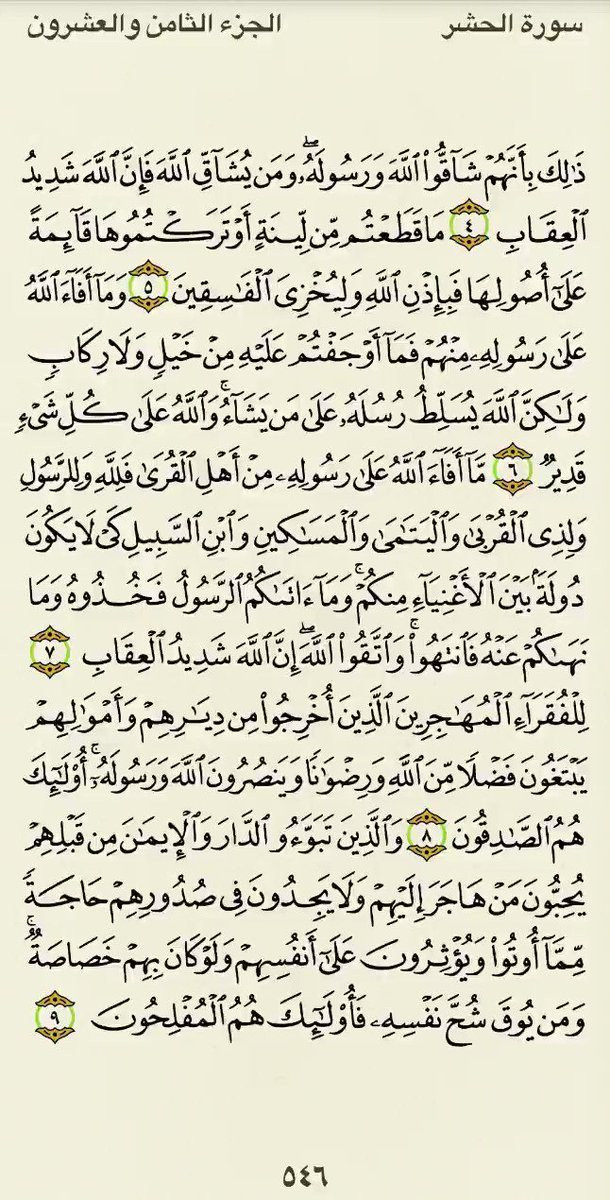 سورة الحشر الجزء الثامن والعشرون
ذَٰلِكَ بِأَنَّهُمْ شَآقُّوا۟ ٱللَّهَ وَرَسُولَهُۥ ۖ وَمَن يُشَآقِّ ٱللَّهَ فَإِنَّ ٱللَّهَ شَدِيدُ
ٱلْعِقَابِ ٤ مَا قَطَعْتُم مِّن لِّينَةٍ أَوْ تَرَكْتُمُوهَا قَآئِمَةً
عَلَىٰٓ أُصُولِهَا فَبِإِذْنِ ٱللَّهِ وَلِيُخْزِىَ ٱلْفَـٰسِقِينَ ٥ وَمَآ أَفَآءَ ٱللَّهُ
عَلَىٰ رَسُولِهِۦ مِنْهُمْ فَمَآ أَوْجَفْتُمْ عَلَيْهِ مِنْ خَيْلٍ وَلَا رِكَابٍ
وَلَـٰكِنَّ ٱللَّهَ يُسَلِّطُ رُسُلَهُۥ عَلَىٰ مَن يَشَآءُ ۚ وَٱللَّهُ عَلَىٰ كُلِّ شَىْءٍ
قَدِيرٌ ٦ مَّآ أَفَآءَ ٱللَّهُ عَلَىٰ رَسُولِهِۦ مِنْ أَهْلِ ٱلْقُرَىٰ فَلِلَّهِ وَلِلرَّسُولِ
وَلِذِى ٱلْقُرْبَىٰ وَٱلْيَتَـٰمَىٰ وَٱلْمَسَـٰكِينِ وَٱبْنِ ٱلسَّبِيلِ كَىْ لَا يَكُونَ
دُولَةًۢ بَيْنَ ٱلْأَغْنِيَآءِ مِنكُمْ ۚ وَمَآ ءَاتَىٰكُمُ ٱلرَّسُولُ فَخُذُوهُ وَمَا
نَهَىٰكُمْ عَنْهُ فَٱنتَهُوا۟ ۚ وَٱتَّقُوا۟ ٱللَّهَ ۖ إِنَّ ٱللَّهَ شَدِيدُ ٱلْعِقَابِ ٧
لِلْفُقَرَآءِ ٱلْمُهَـٰجِرِينَ ٱلَّذِينَ أُخْرِجُوا۟ مِن دِيَـٰرِهِمْ وَأَمْوَٰلِهِمْ
يَبْتَغُونَ فَضْلًا مِّنَ ٱللَّهِ وَرِضْوَٰنًا وَيَنصُرُونَ ٱللَّهَ وَرَسُولَهُۥٓ ۚ أُو۟لَـٰٓئِكَ
هُمُ ٱلصَّـٰدِقُونَ ٨ وَٱلَّذِينَ تَبَوَّءُو ٱلدَّارَ وَٱلْإِيمَـٰنَ مِن قَبْلِهِمْ
يُحِبُّونَ مَنْ هَاجَرَ إِلَيْهِمْ وَلَا يَجِدُونَ فِى صُدُورِهِمْ حَاجَةً
مِّمَّآ أُوتُوا۟ وَيُؤْثِرُونَ عَلَىٰٓ أَنفُسِهِمْ وَلَوْ كَانَ بِهِمْ خَصَاصَةٌ ۚ
وَمَن يُوقَ شُحَّ نَفْسِهِۦ فَأُو۟لَـٰٓئِكَ هُمُ ٱلْمُفْلِحُونَ ٩
٥٤٦